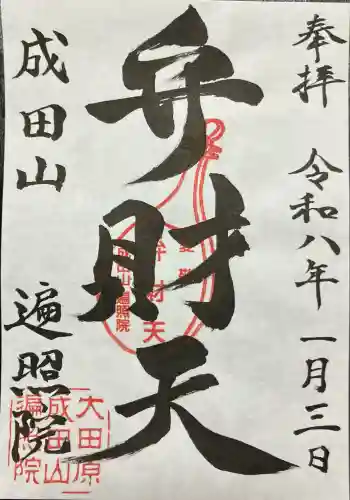 奉拝
令和八年一月三日
弁財天
成田山
遍照院
弁財天
成田山遍照院
大田原
成田山
遍照院